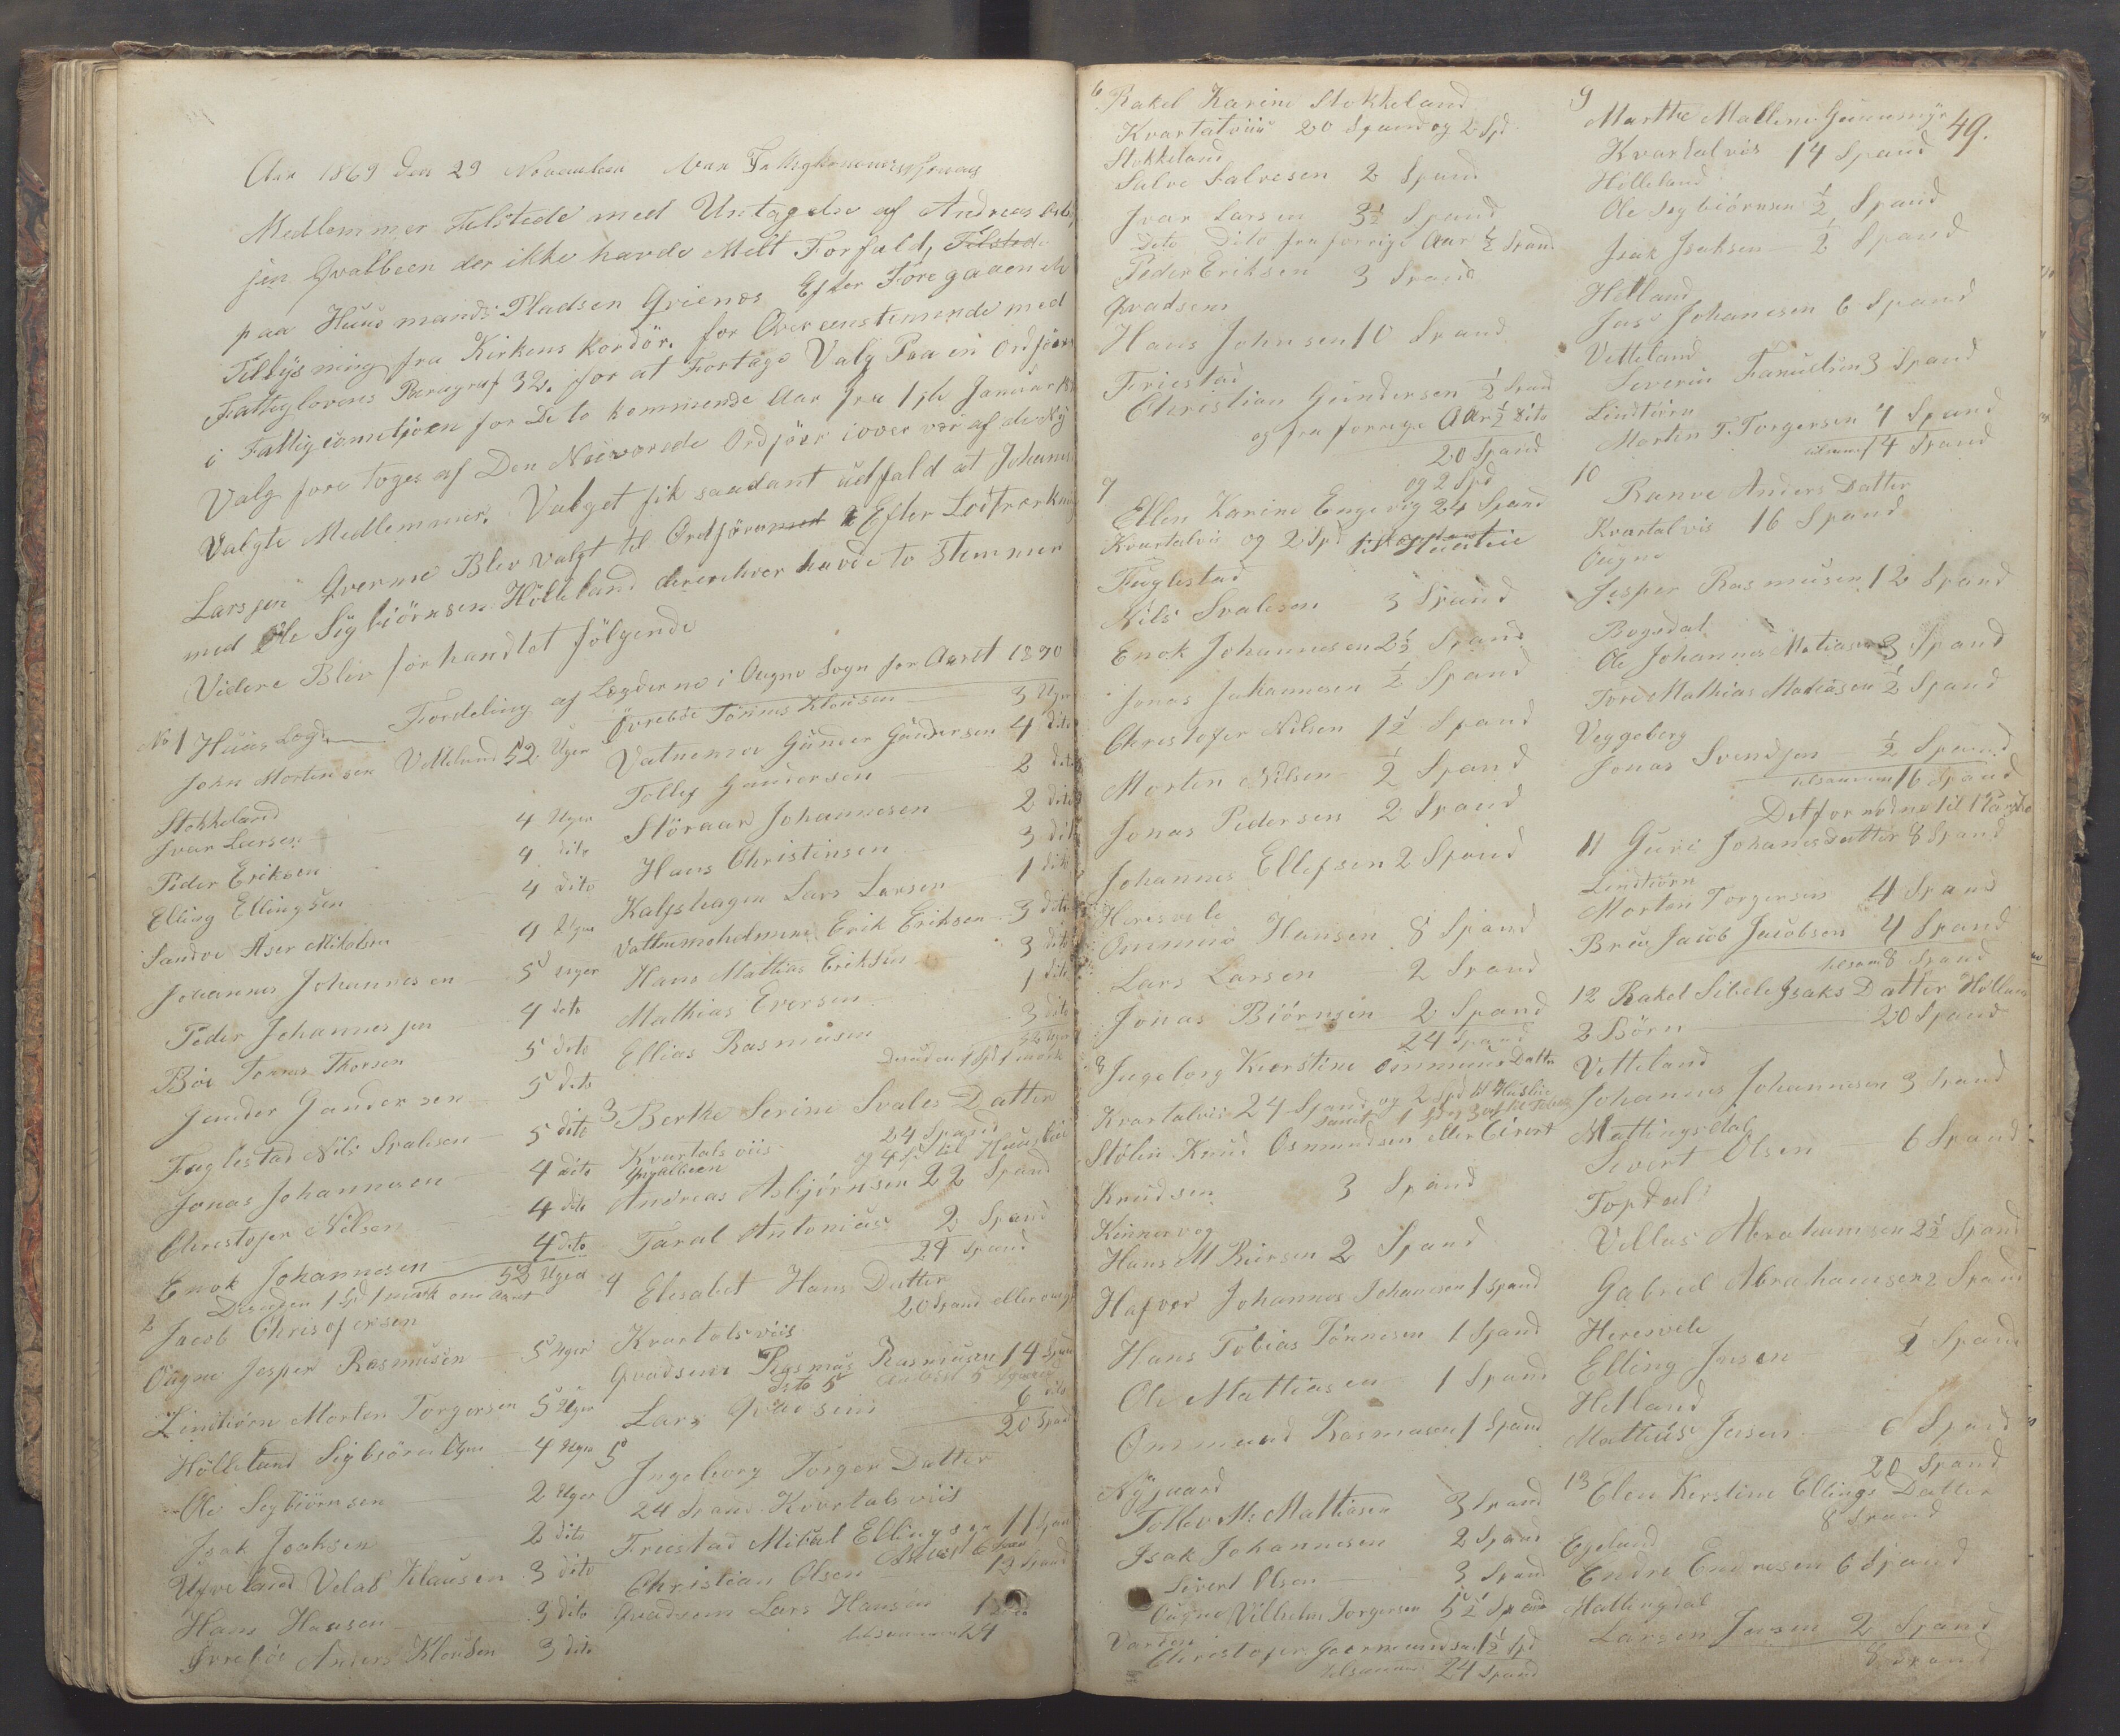 Aar 1869 Den 29 November var
Medlemmer Tilstede med Untagelse af Andreas
sen Qvalbeen der ikke havde Melt Forfald, Tilstede
paa Huusmands Pladsen Grienes Efter Foregaaende
Tillysning fra Kirkens Kordör. for Overeenstemende med
Fattiglovens Paragraf 32. for at Fortage Valg Paa en Ordförer
i Fattigcometjoen for De to kommende Aar fra 1ste Januar
Valg fore toges af Den Nuvorede Ordförer iover vær af de Ny
Valgte Medlemmer. Valget fik saadant udfald at Johannes
Larssen Qverme Blev valgt til Ordförer Efter Lodtrækning
med Ole Sigbiörnsen Hölleland derenhver havde to Stemmer
Videre Blev forhandlet fölgende
Fordeling af Lægderne i Ougne Sogn for Aaret 1870
No 1 Huus Lægd
John Mortensen Vetteland 52 Uger
Stokkeland
Ivar Larsen 4 Uger
Peder Eriksen 4 dito
Elling Ellingsen 4 dito
Sandve Aser Mikalsen 4 Uger
Johannes Johannesen 5 Uger
Peder Johannessen 4 dito
Böe Tönnes Thorsen 5 dito
Gunder Gundersen 5 dito
Fuglestad Nils Svalesen 5 dito
Jonas Johannesen 4 dito
Christofer Nilsen 4 dito
Enok Johannesen 4 dito
52 Uger
Desuden 1 Spd 1 mark om Aaret
2 Jacob Christofersen
Ougne Jesper Rasmusen 5 Uger
Lindtiörn Morten Torgersen 5 Uger
Hölleland Sigbiörn Olsen 4 Uger
Ole Segbiörnsen 2 Uger
Isak Isaksen 2 dito
Ueveland Velas Klausen 3 dito
Hans Hansen 3 dito
Övreböe Anders Klausen 3 dito
Övreböe Tönnes Klausen 3 Uger
Vatnemoe Gunder Gundersen 4 dito
Tollef Gundersen 2 dito
Störaar Johannesen 2 dito
Hans Christensen 3 dito
Kalfshagen Lars Larsen 1 dito
Vatnemoholmene Erik Eriksen 3 dito
Hans Mathias Eriksen 3 dito
Mathias Eversen 1 dito
Ellias Rasmusen 3 dito
52 Uger
Desuden 1 Spd 1 mark
3 Berthe Serine Svales Datter
Kvartalsviis 24 Spand
og 4 sk til Huusleie
Qvalbeen
Andreas Asbjörnsen 22 Spand
Taral Antonius 2 Spand
24 Spand
4 Elesabet Hans Datter
Kvartalsviis 20 Spand
Qvadsem Rasmus Rasmusen 14 Spand
Lars Qvadsem 6 dito
20 Spand
5
Ingeborg Torger Datter
24 Spand Kvartalsviis
Friestad Mikal Ellingsen 11 Spand
Christian Olsen 12 Spand
Qvadsem Lars Hansen 1 Spand
tilsammen 24
6 Rakel Karine Stokkeland
Kvartalviis 20 Spand og 2 Spd
Stokkeland
Salve Salvesen 2 Spand
Ivar Larsen 3½ Spand
Dito Dito fra forrige Aar ½ Spand
Peder Eriksen 3 Spand
Qvadsem
Hans Johnsen 10 Spand
Friestad
Christian Gundersen ½ Spand
og fra forrige Aar ½ dito
20 Spand
og 2 Spd
7
Ellen Karine Engevig 24 Spand
Kvartalvii og 2 Spd
Fuglestad
Nils Svalesen 3 Spand
Enok Johannesen 2½ Spand
Jonas Johannesen ½ Spand
Christofer Nilsen 1½ Spand
Morten Nilsen ½ Spand
Jonas Pedersen 2 Spand
Johannes Ellefsen 2 Spand
Herrevele
Ommun Hansen 8 Spand
Lars Larsen 2 Spand
Jonas Biörnsen 2 Spand
24 Spand
8 Ingeborg Kierstine Ommuns Datter
Kvartalvis 24 Spand og 2 Spd til Huslie
Stölen Knud Osmundsen eller Sivert
Knudsen 3 Spand
Kinnervog
Hans M Peersen 2 Spand
Hafvor Johannes Johannesen 1 Spand
Hans Tobias Tönnesen 1 Spand
Ole Mattiasen 1 Spand
Ommund Rasmusen 1 Spand
Nÿgaard
Tollev M. Mathiasen 3 Spand
Isak Johannesen 2 Spand
Sivert Olsen 3 Spand
Ougne Vilhelm Torgersen 5½ Spand
Varden
Christofer Goormundsen 1½ Spd
tilsammen 24 Spand
9
49.
Marthe Malline Gunnmÿr
Kvartalvis 14 Spand
Hölleland
Ole Segbiörnsen ½ Spand
Isak Isaksen ½ Spand
Helland
Jens Johanesen 6 Spand
Vetteland
Severin Fanuelsen 3 Spand
Lindtiörn
Morten T. Torgersen 4 Spand
tilsam 14 Spand
10
Ranve Anders Datter
Kvartalvis 16 Spand
Ougne
Jesper Rasmusen 12 Spand
Bogsdal
Ole Johannes Matiasen 3 Spand
Tore Mathias Matiasen ½ Spand
Veggeberg
Jonas Svendsen ½ Spand
tilsammen 16 Spand
11 Guri Johanes Datter 8 Spand
Lindtiörn
Morten Torgersen 4 Spand
Brue Jacob Jacobsen 4 Spand
tilsam 8 Spand
12 Rakel Sibele Isaks Datter Hölland
2 Börn 20 Spand
Vetteland
Johannes Johannesen 3 Spand
Mattingsdal
Sivert Olsen 6 Spand
Topdal
Vellas Abrahamsen 2½ Spand
Gabrel Abrahamsen 2 Spand
Herrevele
Elling Jnsen ½ Spand
Helland
Mattius Jnsen 6 Spand
20 Spand
13 Elen Kerstine Ellings Datter
8 Spand
Egeland
Endre Endresen 6 Spand
Mattingsdal
Larsen Jensen 2 Spand
8 Spand